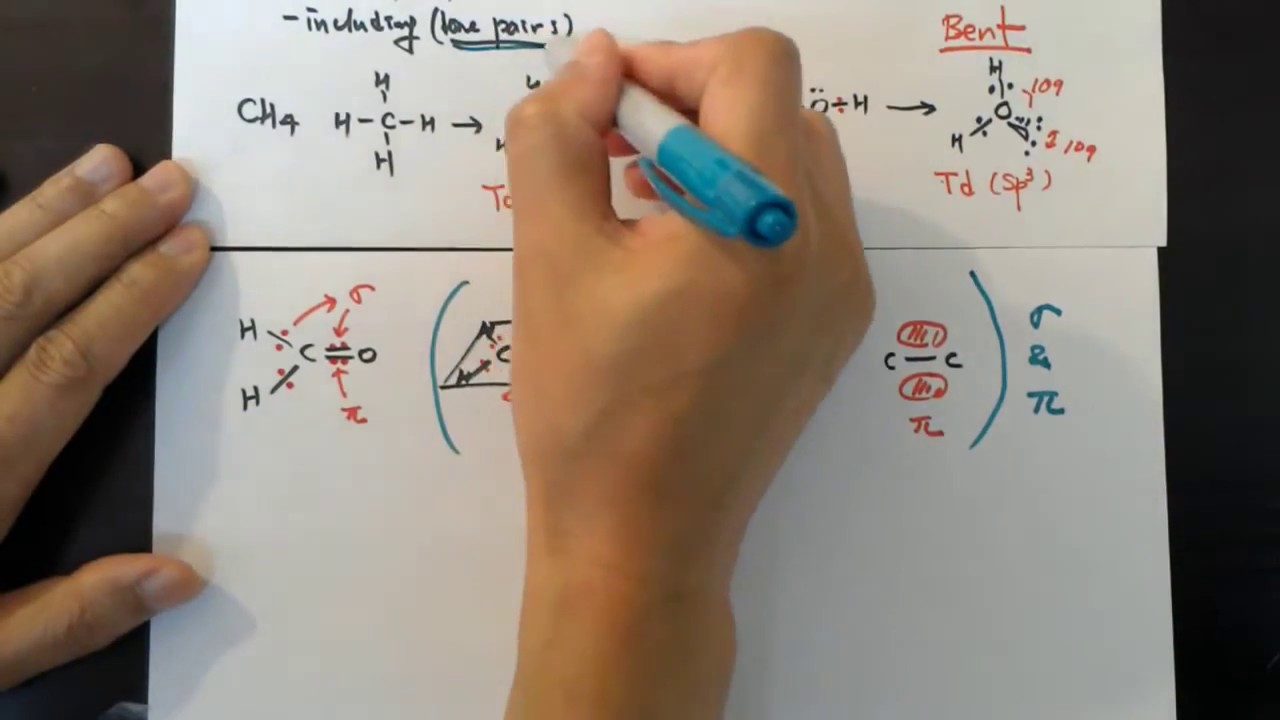 - including (lone pairs)
Bent
CH4 H-C-H → Ö÷H → H
H H O 109
H H 109
Td Td (sp³)
H σ σ
C=O C C — C &
H π π π